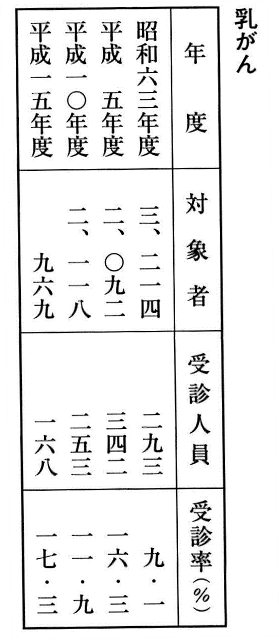 乳がん
年度 対象者 受診人員 受診率(%)
昭和六三年度 三、二一四 二九三 九・一
平成 五年度 二、〇九二 三四二 一六・三
平成一〇年度 二、一一八 二五三 一一・九
平成一五年度 九六九 一六八 一七・三